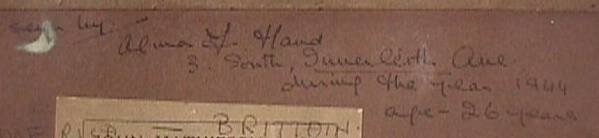 by
Alma H. Hand
3. South, Innerleith Ave.
during the year 1944
age - 26 years
BRITTOIN